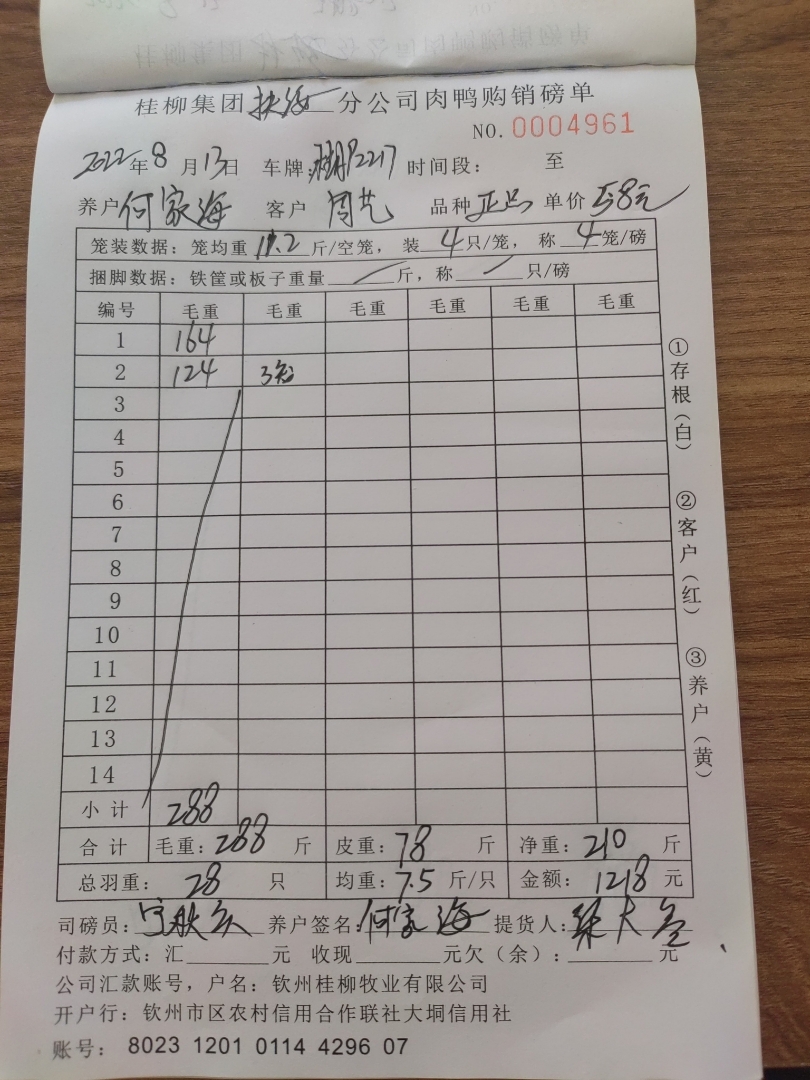 桂柳集团扶绥分公司肉鸭购销磅单
NO. 0004961
2022年8月13日 车牌: 2217 时间段: 至
养户 何家海 客户 周艺 品种 正品 单价 5.8元
笼装数据: 笼均重 11.2 斤/空笼, 装 4 只/笼, 称 4 笼/磅
捆脚数据: 铁筐或板子重量 / 斤, 称 / 只/磅
编号 毛重 毛重 毛重 毛重 毛重 毛重
1 164
2 124 3笼
3
4
5
6
7
8
9
10
11
12
13
14
小计 288
合计 毛重: 288 斤 皮重: 78 斤 净重: 210 斤
总羽重: 28 只 均重: 7.5 斤/只 金额: 1218 元
司磅员: 养户签名: 何家海 提货人:
付款方式: 汇 元 收现 元欠（余）: 元
公司汇款账号, 户名: 钦州桂柳牧业有限公司
开户行: 钦州市区农村信用合作联社大垌信用社
账号: 8023 1201 0114 4296 07
①存根（白）
②客户（红）
③养户（黄）